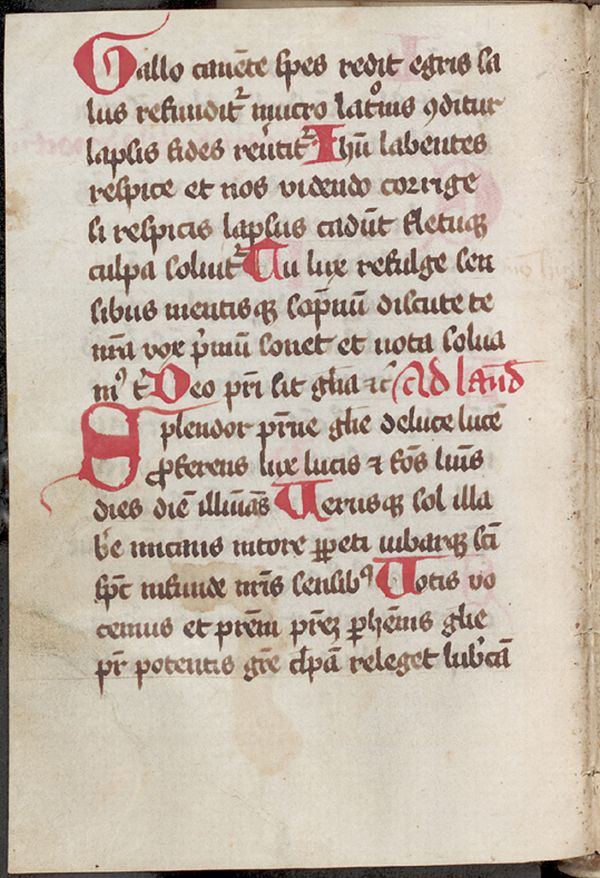 Gallo canēte spes redit egris sa
lus refundit᷑ mucro latᷣoīs ꝯditur
lapsis fides reūtit᷑ Ihū labentes
respice et nos videndo corrige
si respicis lapsus cadūt fletuqꝫ
culpa soluit᷑ Tu lux refulge sen
sibus mentisqꝫ sōpnū discute te
nr̄a vox pͥmū sonet et uota solua
mꝰ tͥ Deo pr̄i sit gl̄ia ⁊c̄ Ad laud̄
Splendor pr̄ne gl̄ie de luce lucē
proferens lux lucis ⁊ fōs lūīs
dies diē illūīās Verusqꝫ sol illa
b̄e micans nitore ꝑpeti iubarqꝫ sc̄i
sp̄c infunde nr̄is sensibꝰ Votis vo
cemus et pr̄em pr̄eꝫ ꝑhēnis gl̄ie
pr̄ potentis gr̄e cl̄pā releget lubͥcā